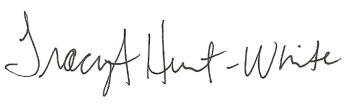 Tracy A Hunt-White